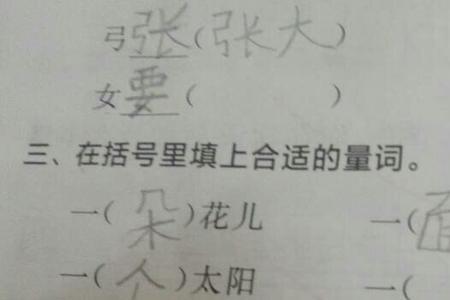 弓张(张大)
女要(    )
三、在括号里填上合适的量词。
一(朵)花儿 一(面
一(个)太阳 一(